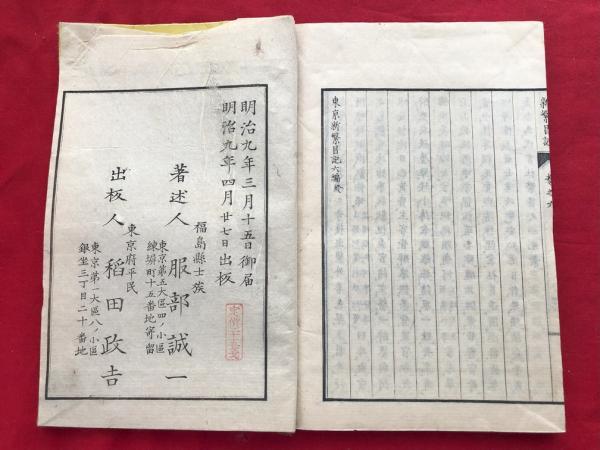 新繁昌記
東京新繁昌記六編終
明治九年三月十五日御届
明治九年四月廿七日出板
福島縣士族
著述人 服部誠一
東京第五大區四ノ小區
練塀町十五番地寄留
東京府平民
出板人 稻田政吉
東京第一大區八ノ小區
銀坐三丁目二十番地